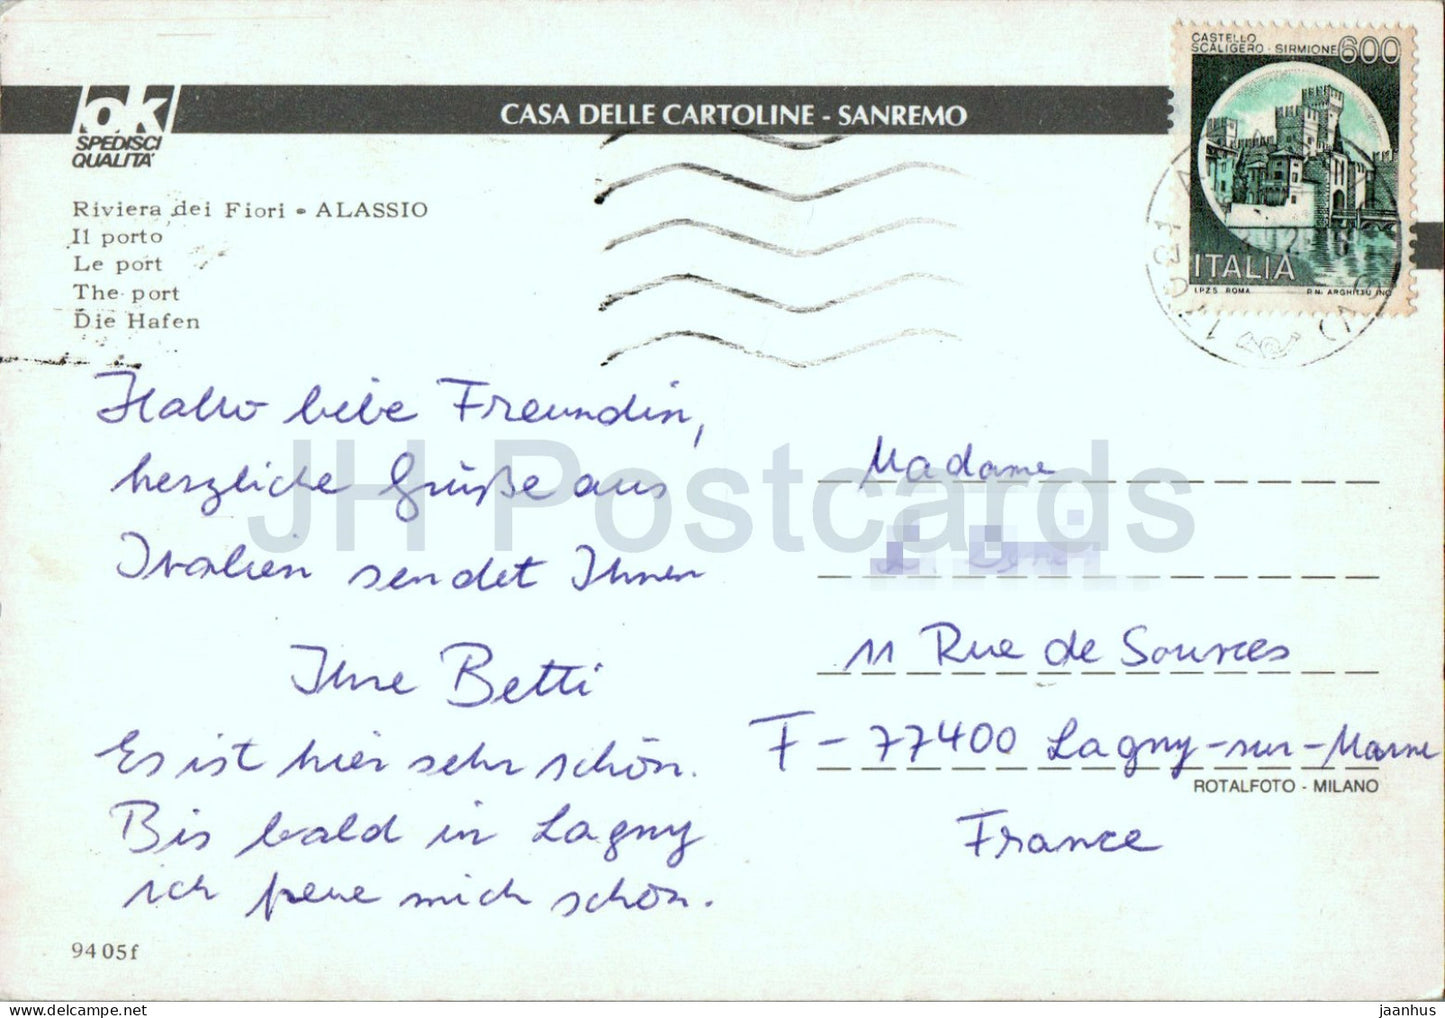 CASTELLO
SCALIGERO - SIRMIONE 600
ok
SPEDISCI
QUALITA'
CASA DELLE CARTOLINE - SANREMO
Riviera dei Fiori - ALASSIO
Il porto
Le port
The port
Die Hafen
ITALIA
I.P.Z.S. ROMA
Hallo liebe Freundin,
herzliche Grüße aus
Italien sendet Ihnen
Ihre Betti
Es ist hier sehr schön.
Bis bald in Lagny
ich freue mich schon.
Madame
11 Rue de Sources
F-77400 Lagny-sur-Marne
ROTALFOTO - MILANO
France
94 05f
JH Postcards
jaanhus